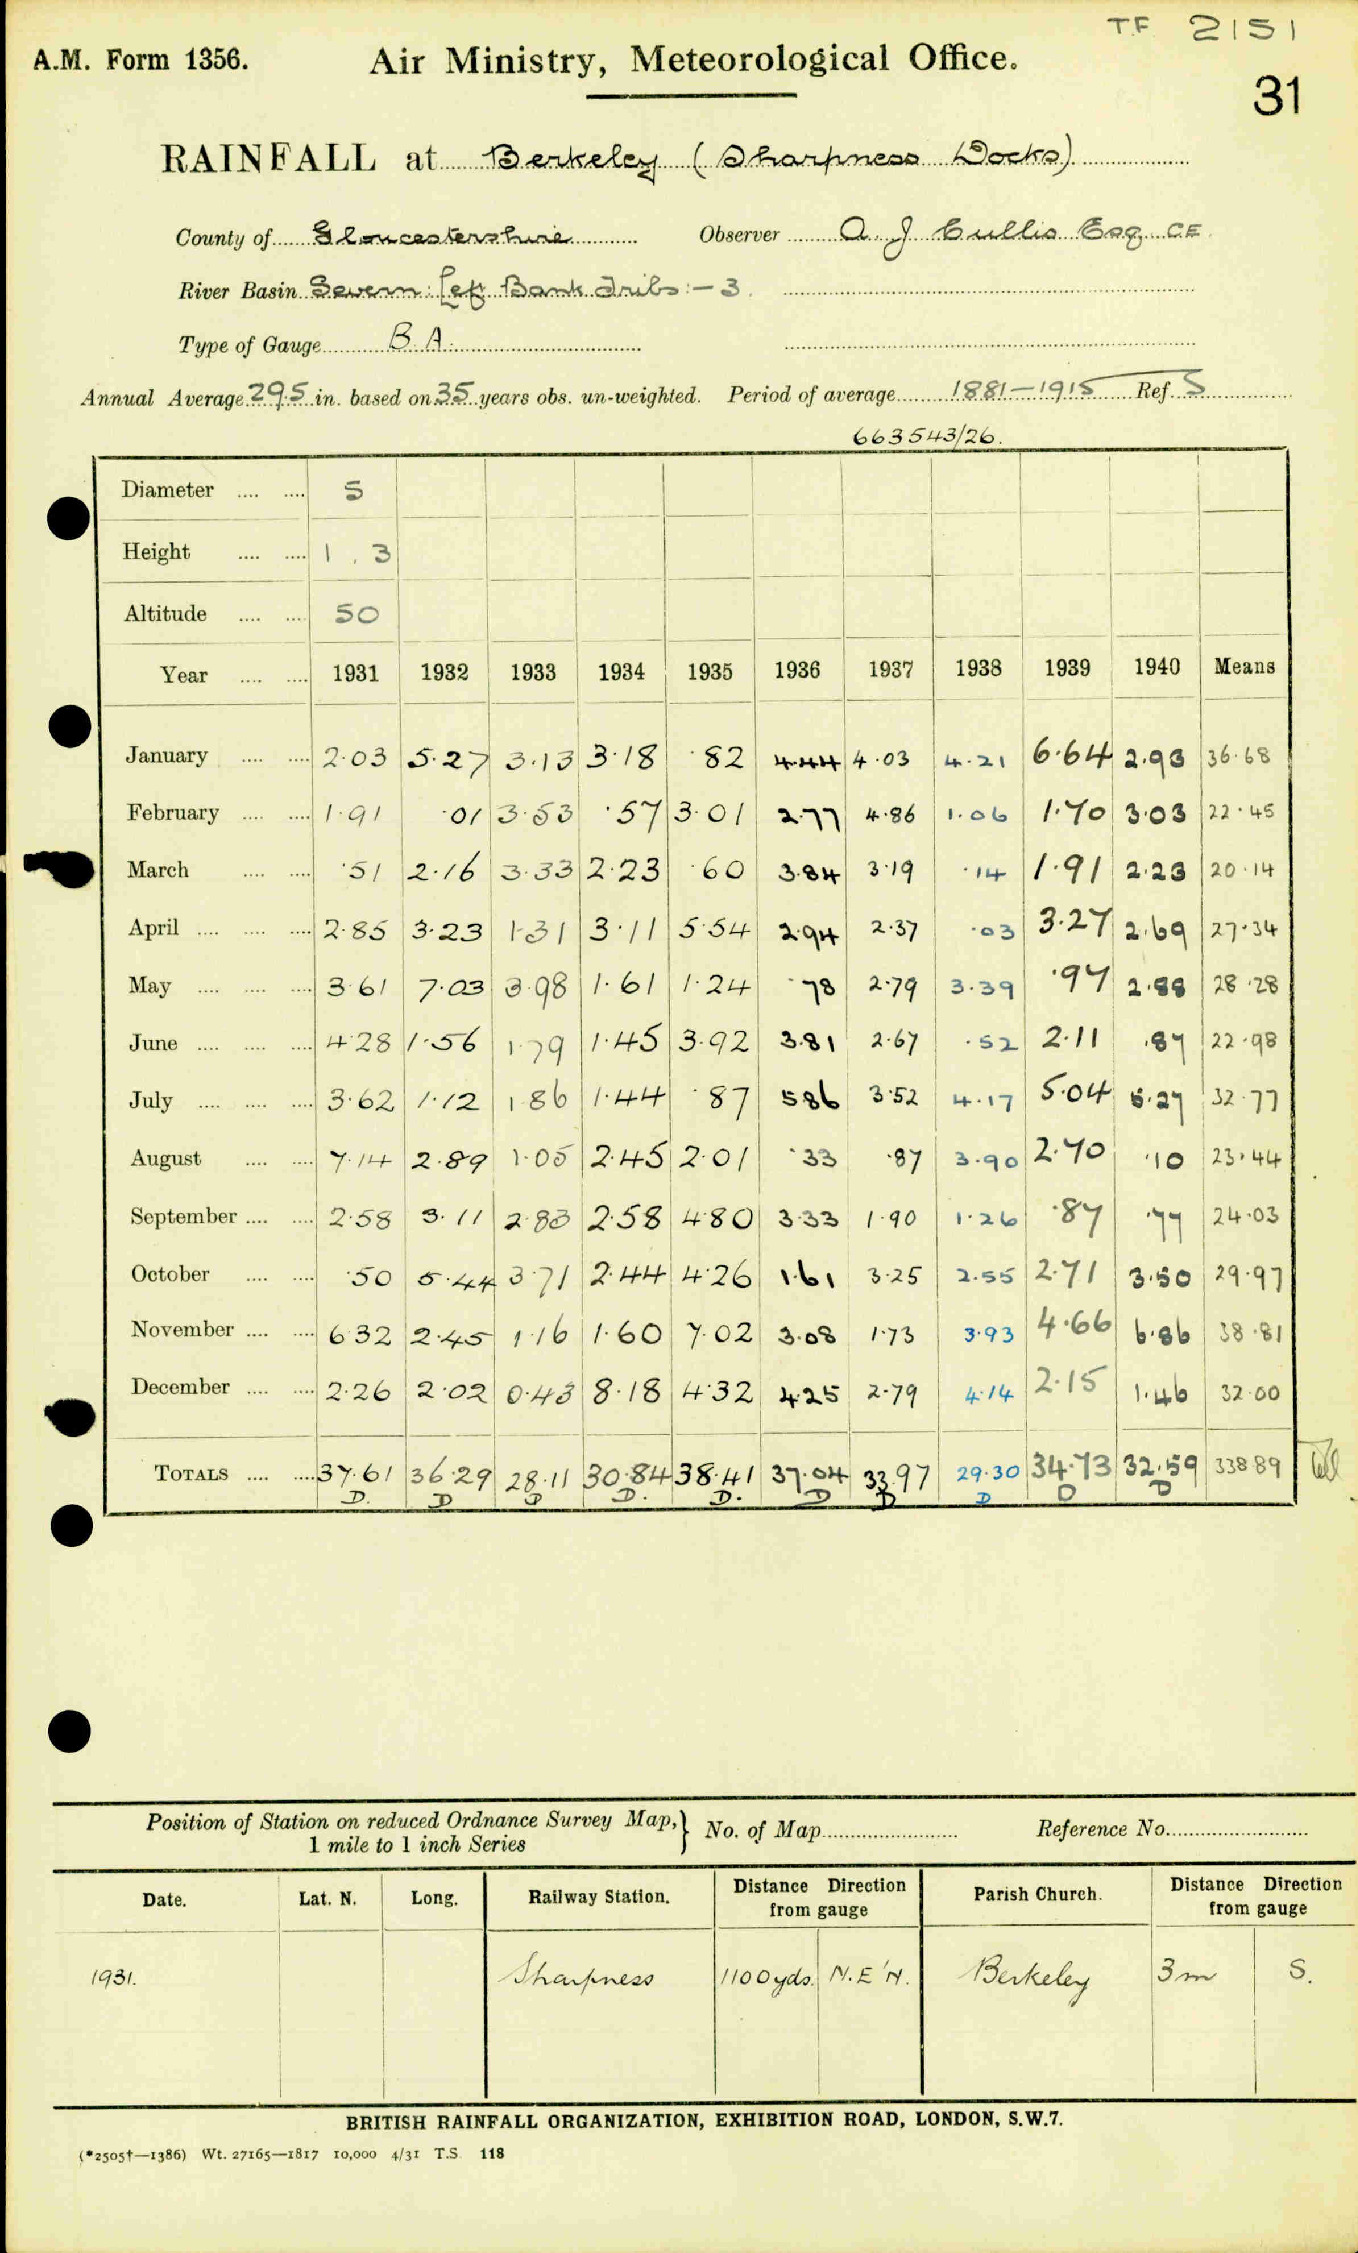 TF 2151
A.M. Form 1356. Air Ministry, Meteorological Office.
31
RAINFALL at Berkeley (Sharpness Docks)
County of Gloucestershire Observer A J Cullis Esq CE.
River Basin Severn: Left Bank Tribs:- 3.
Type of Gauge B. A.
Annual Average 29.5 in. based on 35 years obs. un-weighted. Period of average 1881-1915 Ref. S
663543/26.
Diameter .... .... 5
Height .... .... 1 . 3
Altitude .... .... 50
Year .... .... 1931 1932 1933 1934 1935 1936 1937 1938 1939 1940 Means
January .... .... 2·03 5·27 3·13 3·18 ·82 4·44 4·03 4·21 6·64 2·93 36·68
February .... .... 1·91 ·01 3·53 ·57 3·01 2·77 4·86 1·06 1·70 3·03 22·45
March .... .... ·51 2·16 3·33 2·23 ·60 3·84 3·19 ·14 1·91 2·23 20·14
April .... .... .... 2·85 3·23 1·31 3·11 5·54 2·94 2·37 ·03 3·27 2·69 27·34
May .... .... .... 3·61 7·03 3·98 1·61 1·24 ·78 2·79 3·39 ·97 2·88 28·28
June .... .... .... 4·28 1·56 1·79 1·45 3·92 3·81 2·67 ·52 2·11 ·87 22·98
July .... .... .... 3·62 1·12 1·86 1·44 ·87 5·86 3·52 4·17 5·04 5·27 32·77
August .... .... 7·14 2·89 1·05 2·45 2·01 ·33 ·87 3·90 2·70 ·10 23·44
September .... .... 2·58 3·11 2·83 2·58 4·80 3·33 1·90 1·26 ·87 ·77 24·03
October .... .... ·50 5·44 3·71 2·44 4·26 1·61 3·25 2·55 2·71 3·50 29·97
November .... .... 6·32 2·45 1·16 1·60 7·02 3·08 1·73 3·93 4·66 6·86 38·81
December .... .... 2·26 2·02 0·43 8·18 4·32 4·25 2·79 4·14 2·15 1·46 32·00
TOTALS .... .... 37·61 36·29 28·11 30·84 38·41 37·04 33·97 29·30 34·73 32·59 338·89
D. D D D. D. D D D D D
Position of Station on reduced Ordnance Survey Map,} No. of Map Reference No.
1 mile to 1 inch Series
Date. Lat. N. Long. Railway Station. Distance Direction from gauge Parish Church. Distance Direction from gauge
1931. Sharpness 1100yds. N.E'N. Berkeley 3m S.
BRITISH RAINFALL ORGANIZATION, EXHIBITION ROAD, LONDON, S.W.7.
(*2505†—1386) Wt. 27165—1817 10,000 4/31 T.S. 118